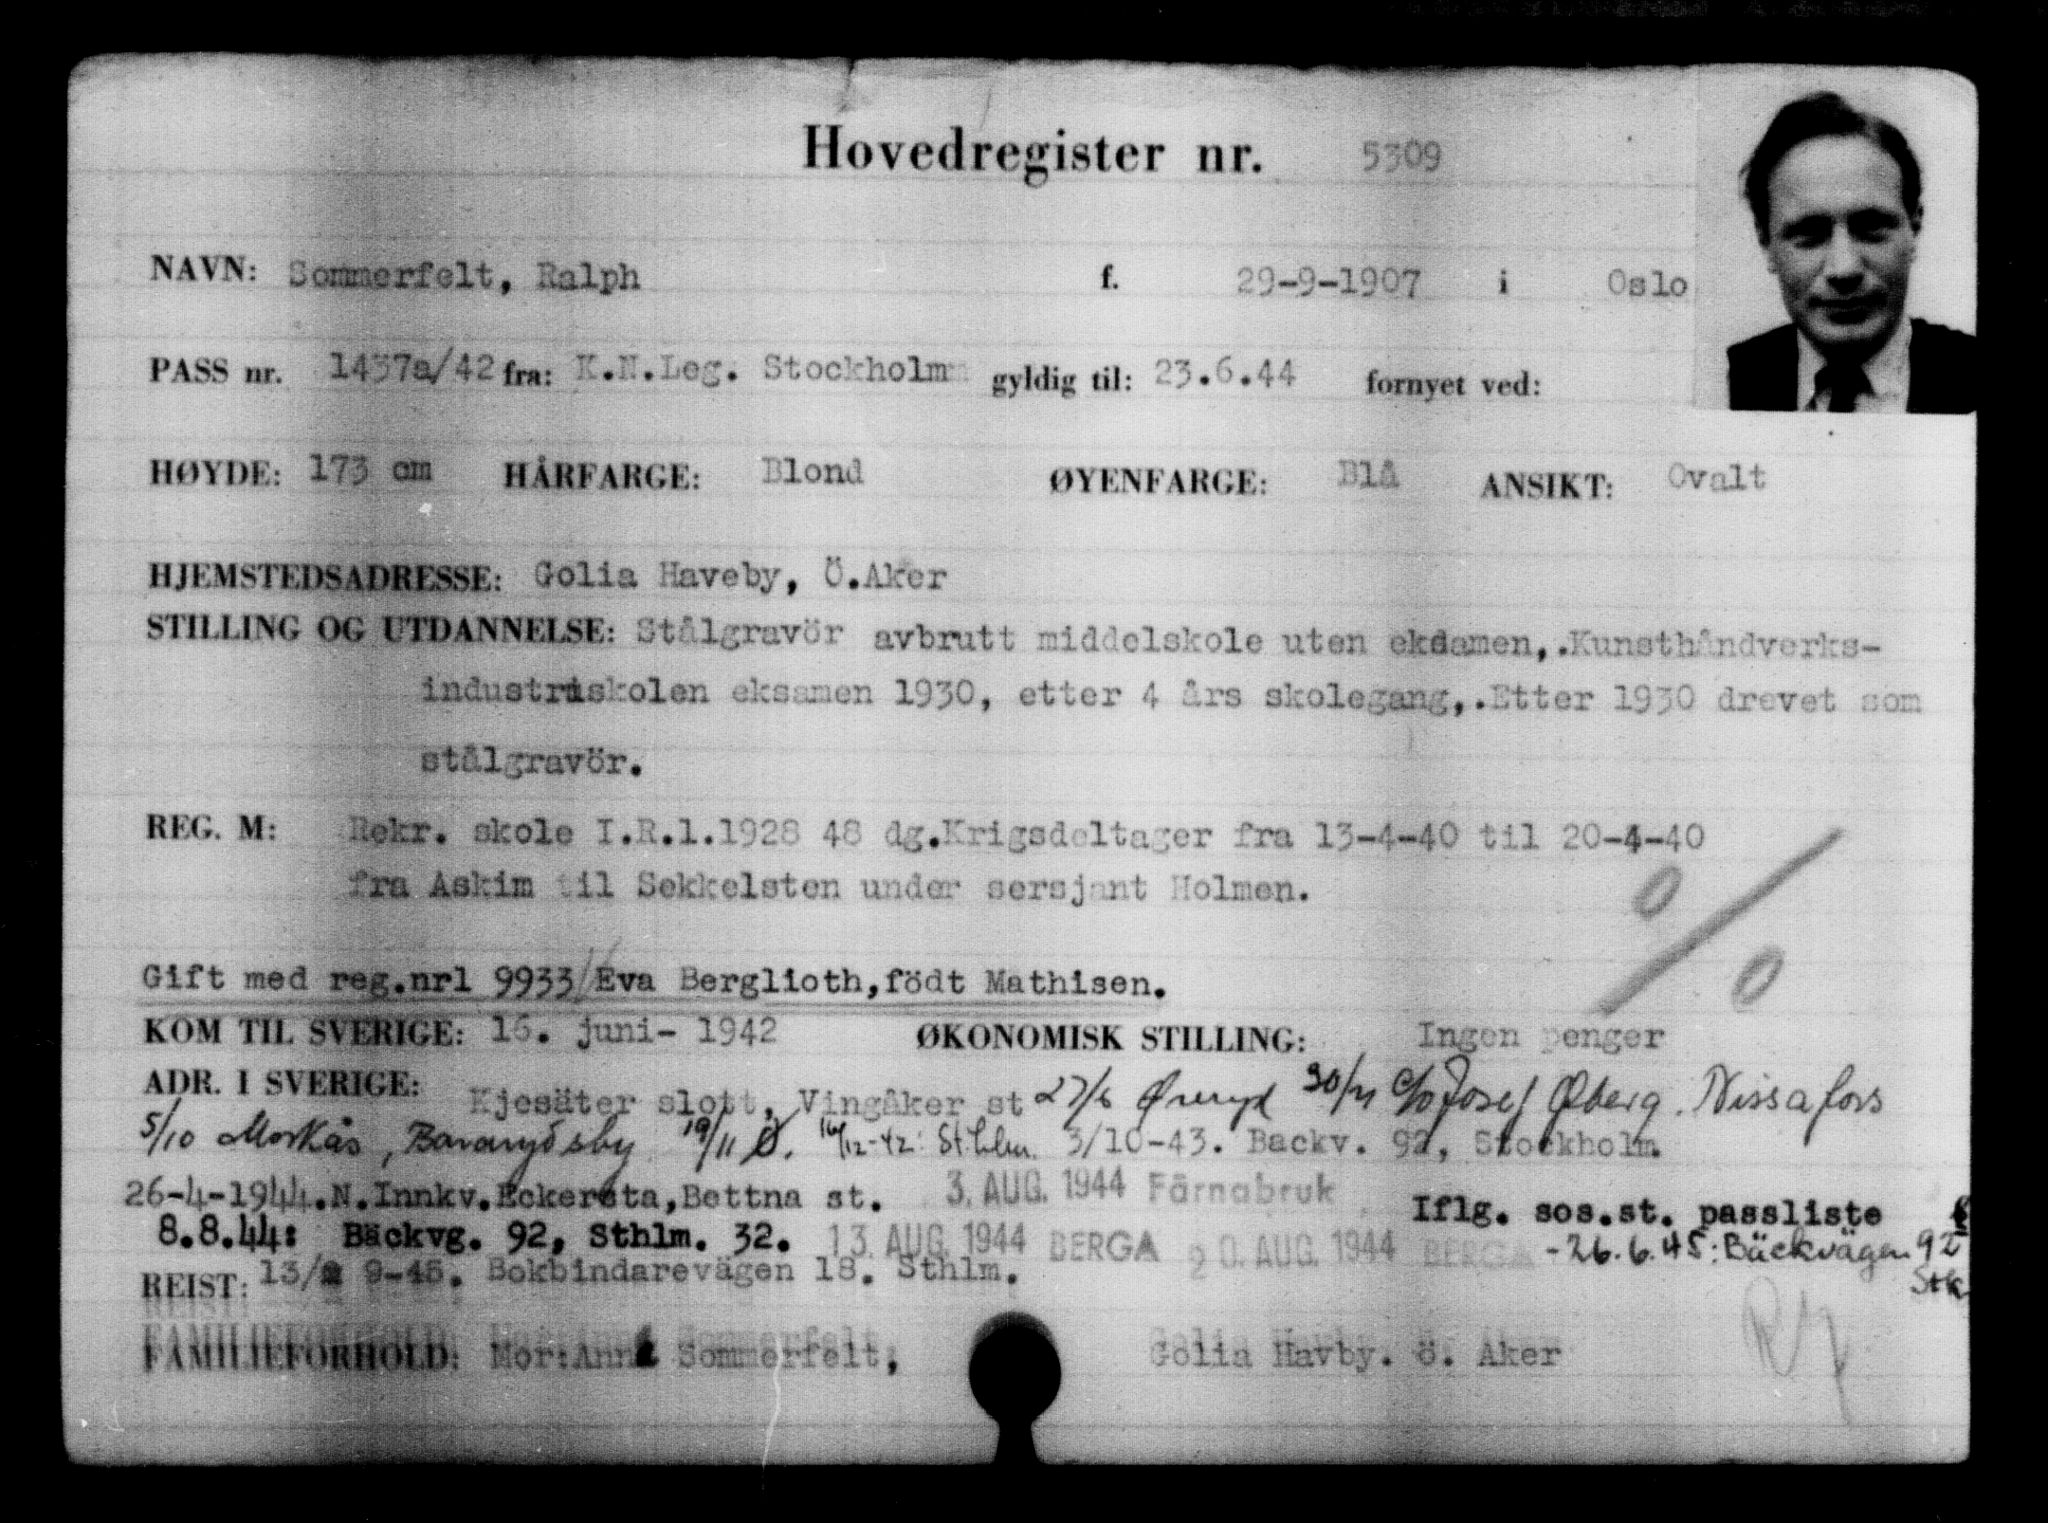 Hovedregister nr. 5309
NAVN: Sommerfelt, Ralph f. 29-9-1907 i Oslo
PASS nr. 1437a/42 fra: K.N.Leg. Stockholm gyldig til: 23.6.44 fornyet ved:
HØYDE: 173 cm HÅRFARGE: Blond ØYENFARGE: Blå ANSIKT: Ovalt
HJEMSTEDSADRESSE: Golia Haveby, Ö.Aker
STILLING OG UTDANNELSE: Stålgravör avbrutt middelskole uten eksamen,.Kunsthåndverks-
industriskolen eksamen 1930, etter 4 års skolegang,.Etter 1930 drevet som
stålgravör.
REG. M: Rekr. skole I.R.1.1928 48 dg.Krigsdeltager fra 13-4-40 til 20-4-40
fra Askim til Sekkelsten under sersjant Holmen.
0/0
Gift med reg.nrl 9933/ Eva Berglioth,födt Mathisen.
KOM TIL SVERIGE: 16. juni- 1942 ØKONOMISK STILLING: Ingen penger
ADR. I SVERIGE: Kjesäter slott, Vingåker st 27/6 Øreryd 30/7 c/o Josef Øberg. Nissafors
5/10 Morkås, 19/11 Ø. 16/12-42: Sthlm. 3/10-43. Backv. 92, Stockholm
26-4-1944.N.Innkv.Eckersta,Bettna st. 3. AUG. 1944 Färnabruk Iflg. sos.st. passliste
8.8.44: Bäckvg. 92, Sthlm. 32. 13. AUG. 1944 BERGA 20. AUG. 1944 BERGA -26.6.45: Bäckvägen 92 Stk
REIST: 13/ 9-45. Bokbindarevägen 18. Sthlm.
FAMILIEFORHOLD: Mor:Anna Sommerfelt, Golia Havby. ö. Aker